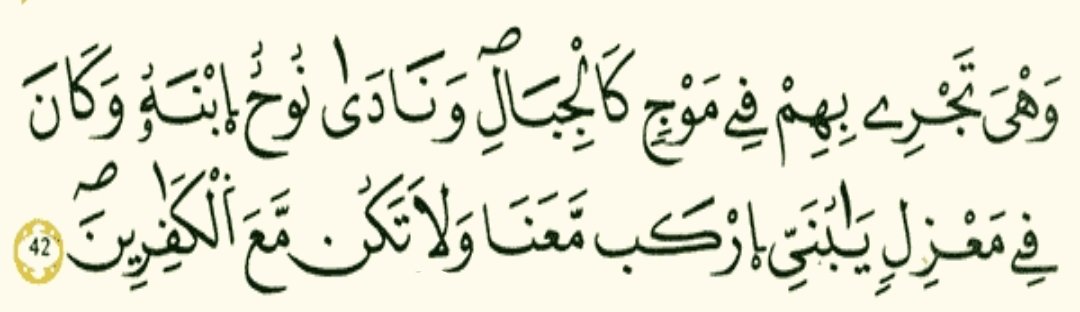 وَهْيَ تَجْرِے بِهِمْ فِے مَوْجٖ كَالْجِبَالِۖ وَنَادَىٰ نُوحٌ اِ۪بْنَهُۥ وَكَانَ
فِے مَعْزِلٖ يَٰبُنَيِّ اِ۪رْكَب مَّعَنَا وَلَا تَكُن مَّعَ اَ۬لْكَٰفِرِينَۖ 42